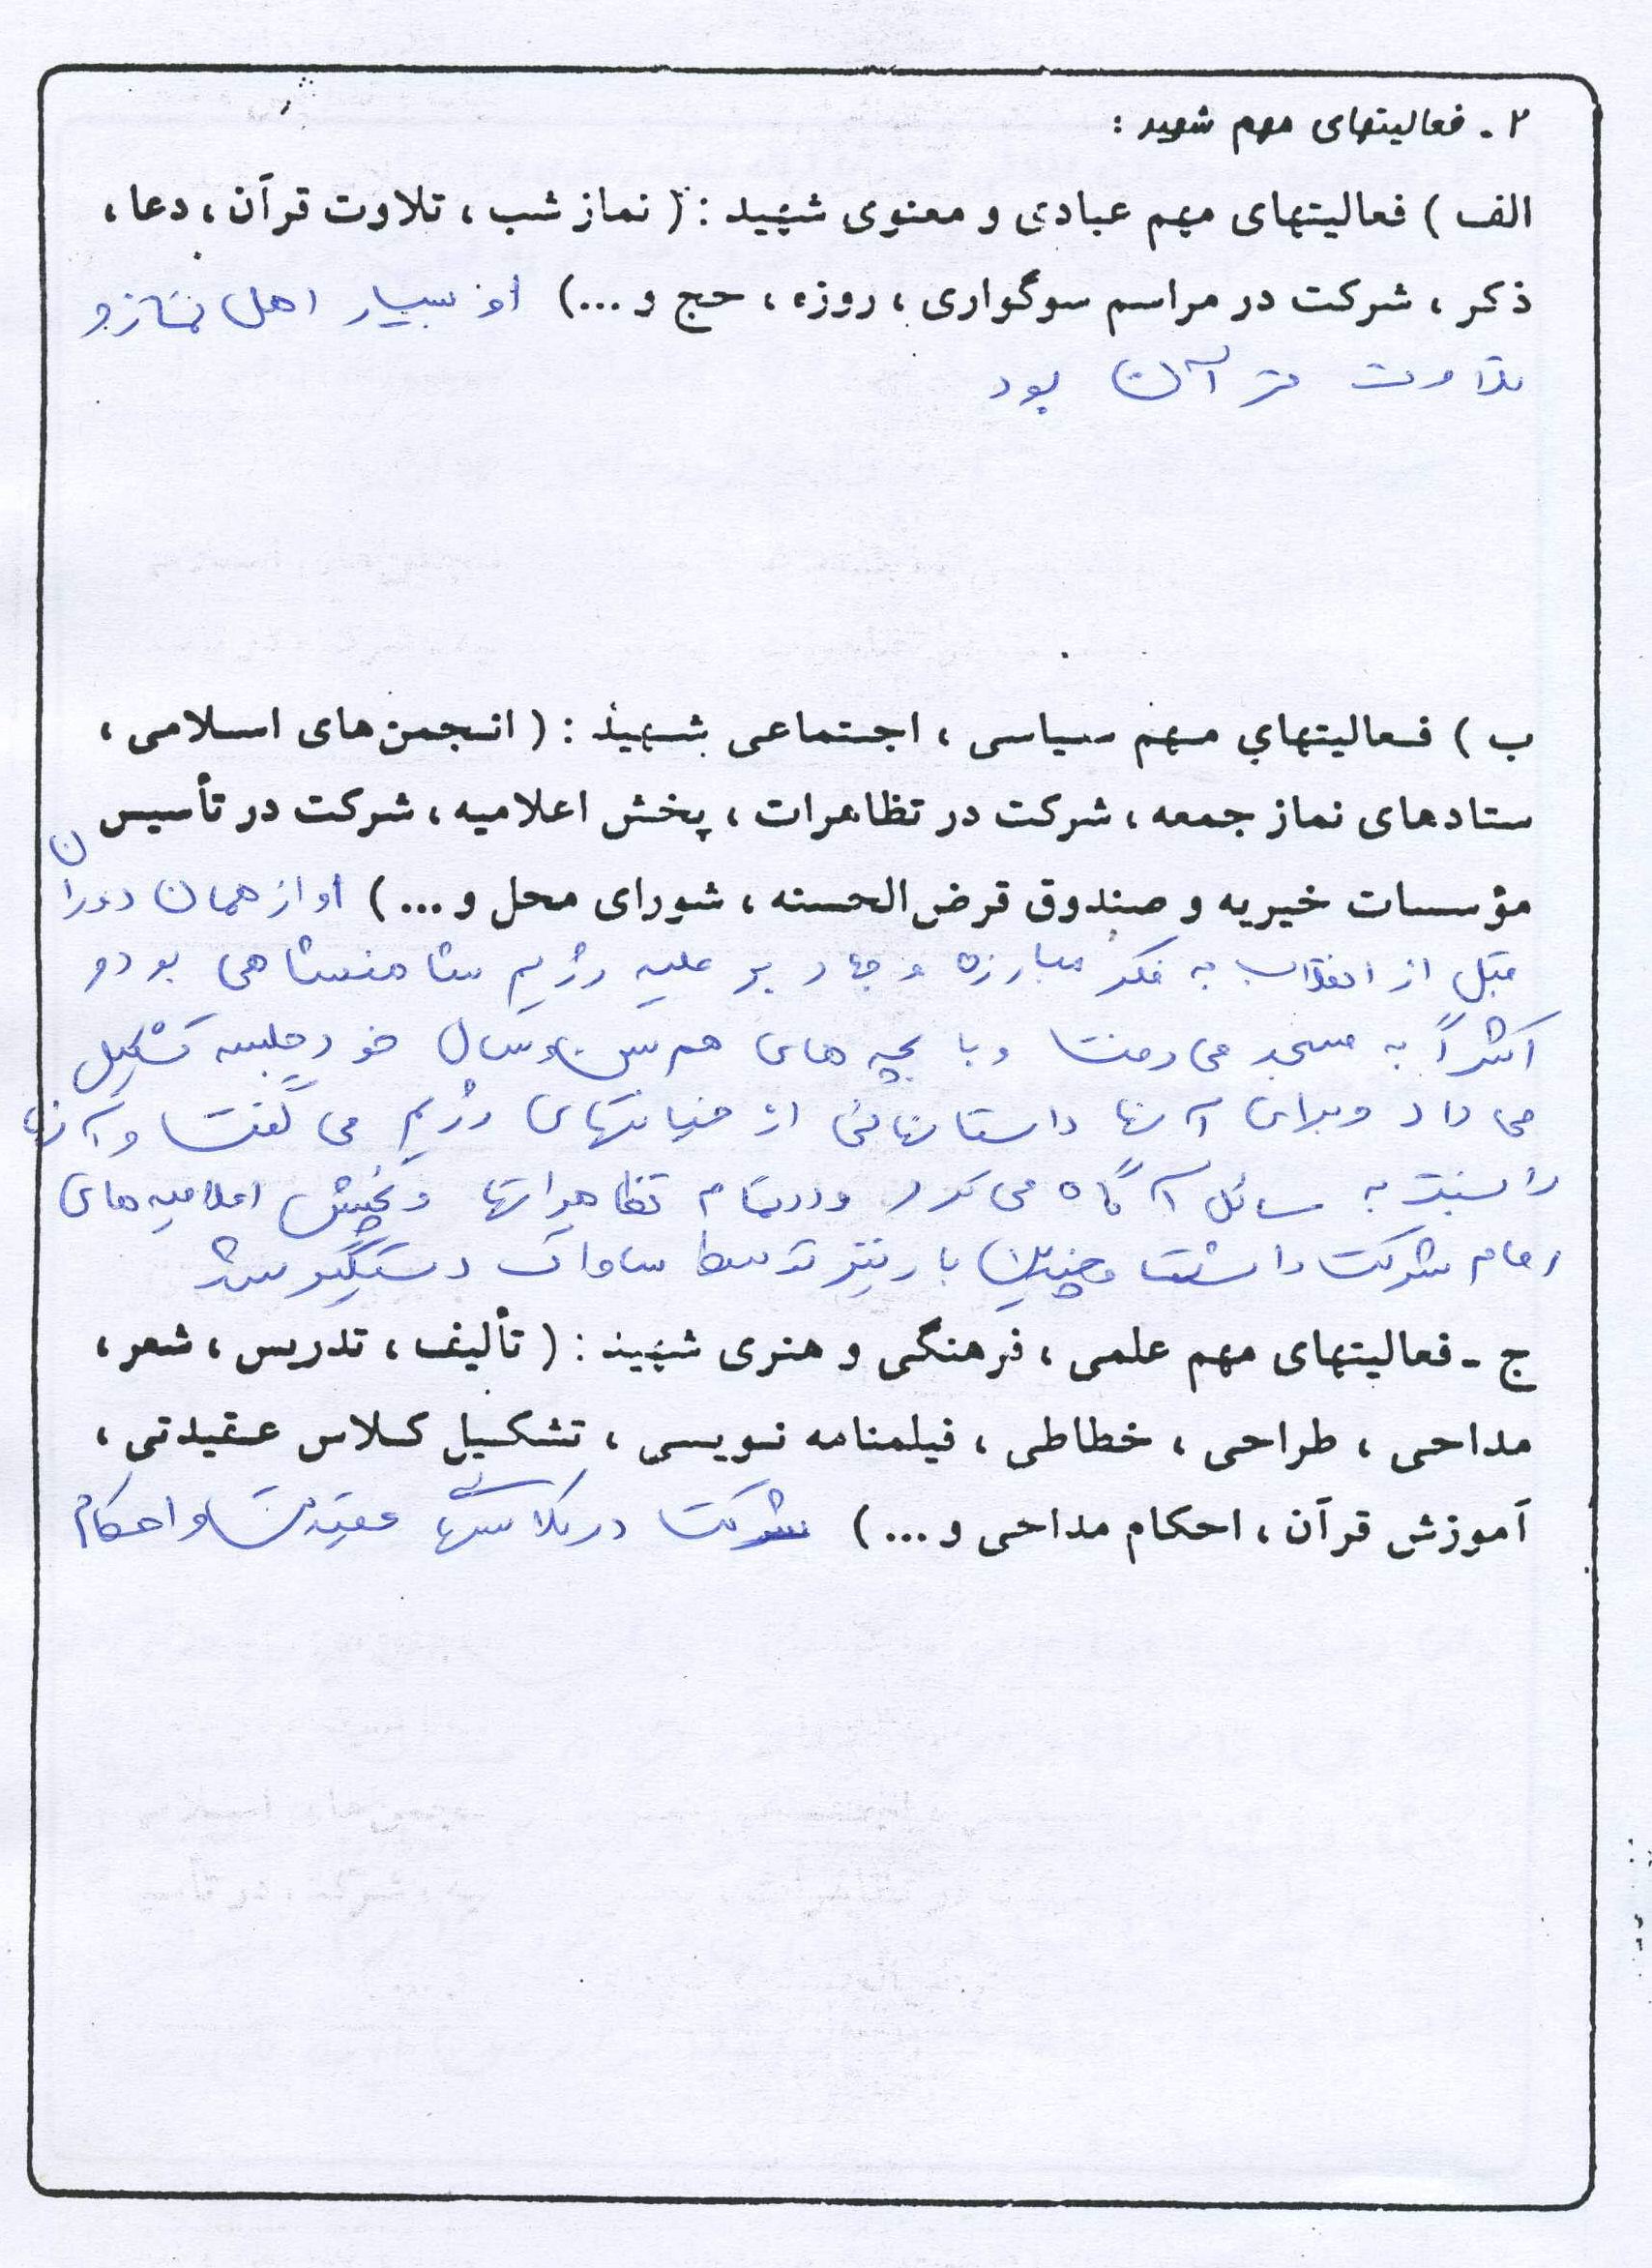 ۲ - فعالیتهای مهم شهید :
الف ) فعالیتهای مهم عبادی و معنوی شهید : ( نماز شب ، تلاوت قرآن ، دعا ،
ذکر ، شرکت در مراسم سوگواری ، روزه ، حج و ...) او بسیار اهل نماز و
تلاوت قرآن بود
ب ) فعالیتهای مهم سیاسی ، اجتماعی شهید : ( انجمن‌های اسلامی ،
ستادهای نماز جمعه ، شرکت در تظاهرات ، پخش اعلامیه ، شرکت در تأسیس
مؤسسات خیریه و صندوق قرض‌الحسنه ، شورای محل و ...) او از همان دوران
قبل از انقلاب به فکر مبارزه و جهاد بر علیه رژیم شاهنشاهی بود و
اکثراً به مسجد می رفت و با بچه های هم سن و سال خود جلسه تشکیل
می داد و برای آنها داستانهائی از خیانتهای رژیم می گفت و آنها
را نسبت به مسائل آگاه می کرد و در تمام تظاهراتها و پخش اعلامیه های
امام شرکت داشت و چندین بار نیز توسط ساواک دستگیر شد
ج - فعالیتهای مهم علمی ، فرهنگی و هنری شهید : ( تألیف ، تدریس ، شعر ،
مداحی ، طراحی ، خطاطی ، فیلمنامه نویسی ، تشکیل کلاس عقیدتی ،
آموزش قرآن ، احکام مداحی و ... ) شرکت در کلاسهای عقیدتی و احکام